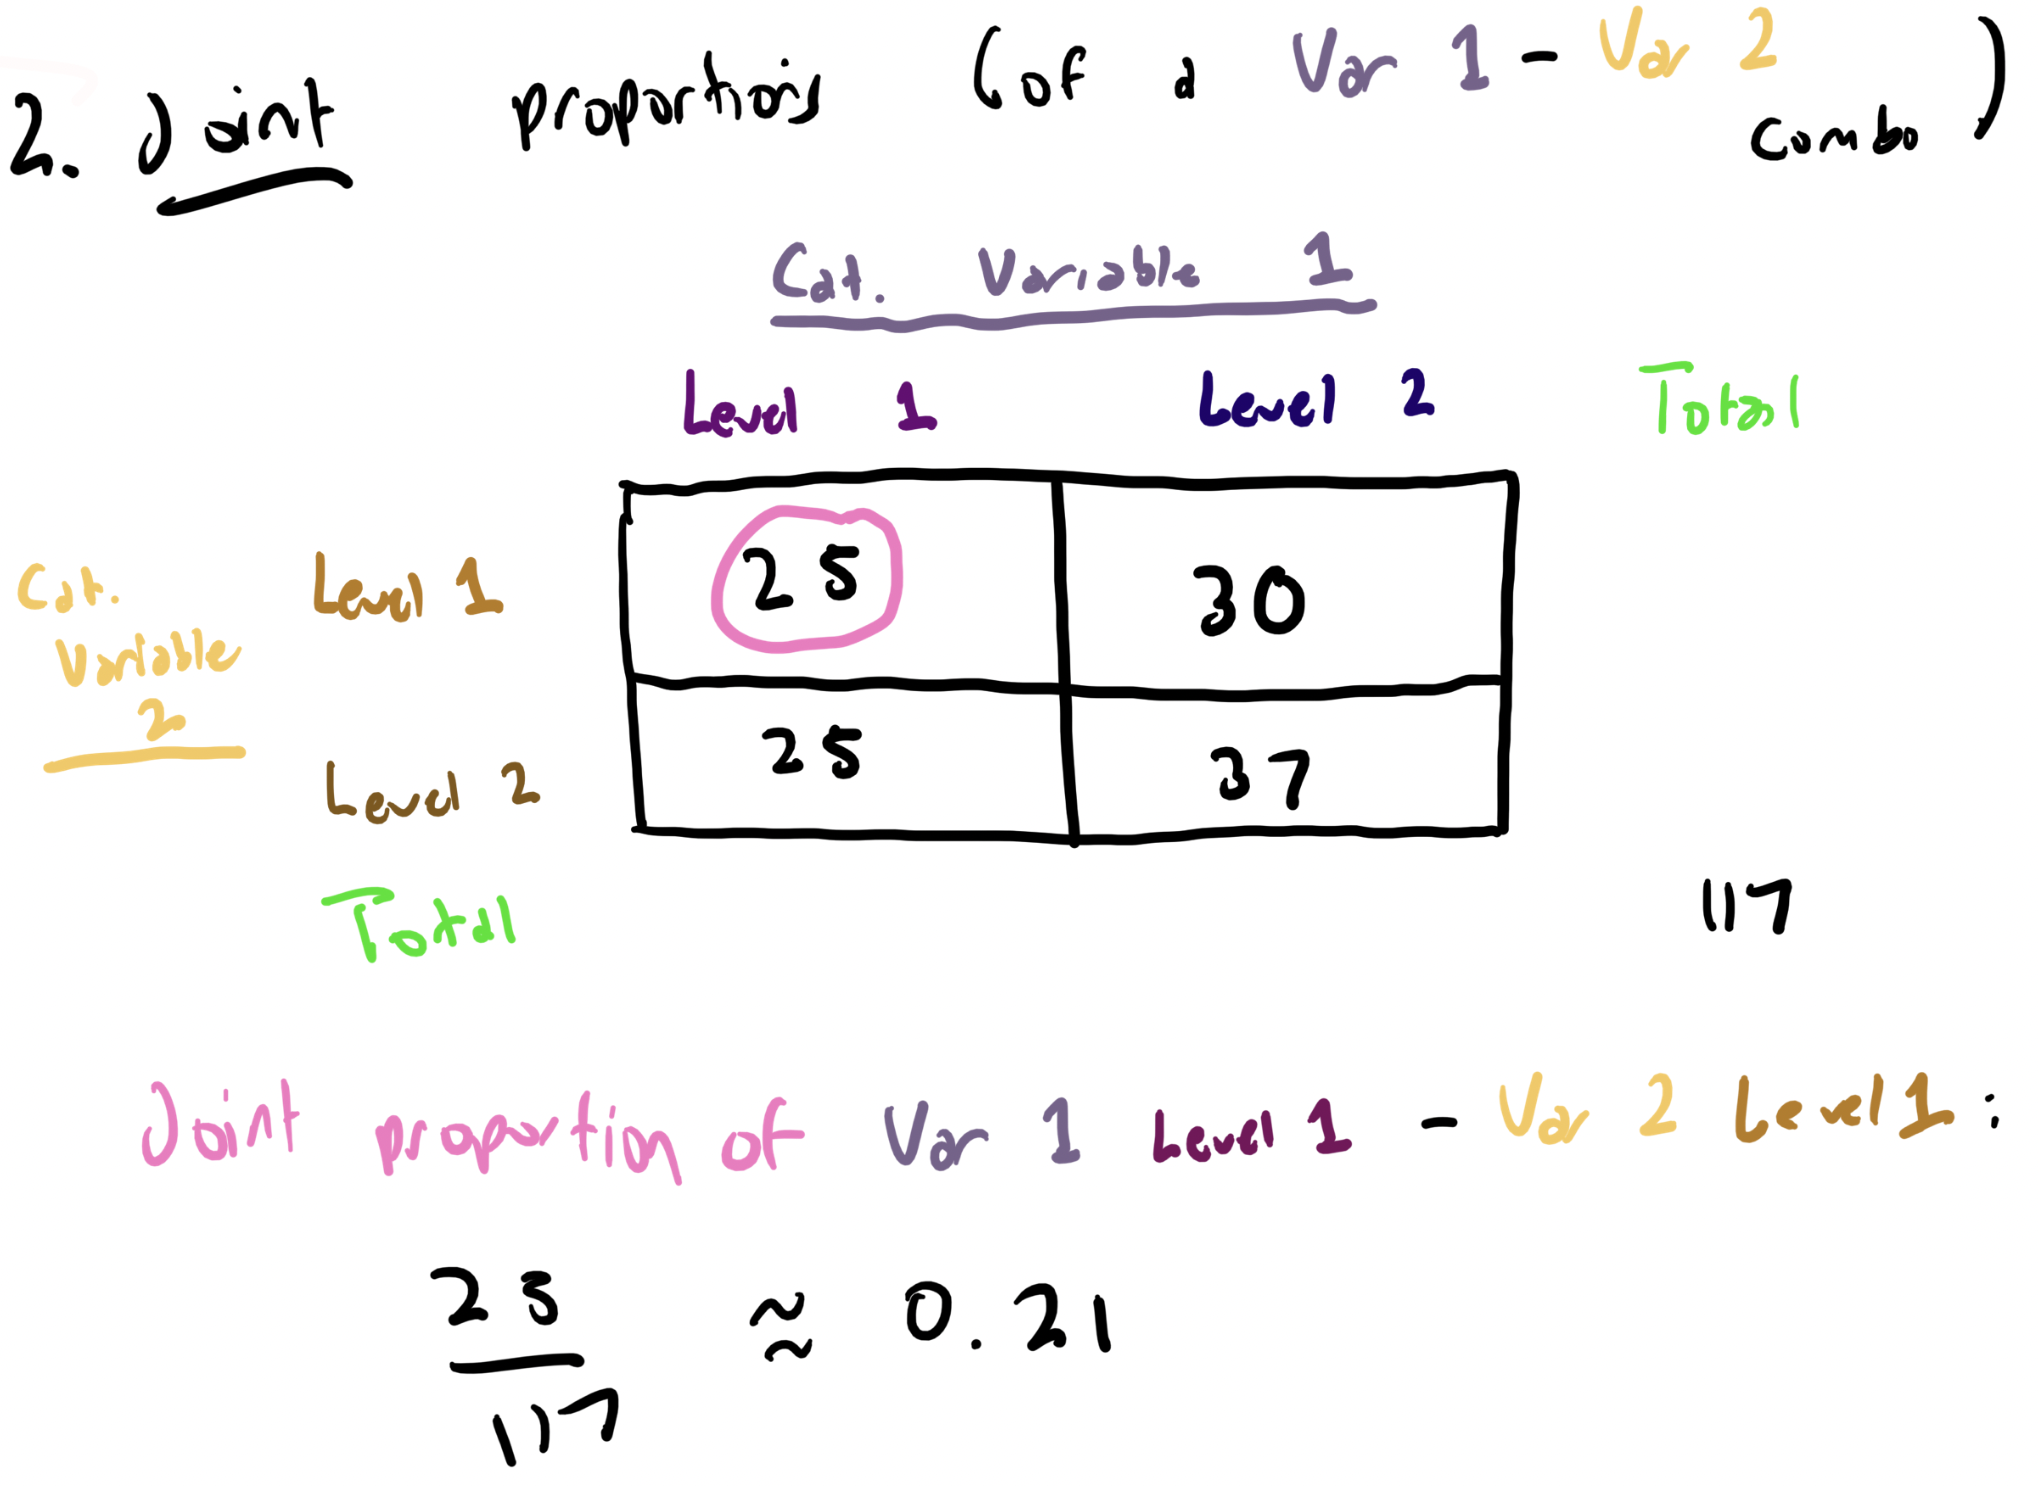 2. Joint proportions (of a Var 1 - Var 2
combo)
Cat. Variable 1
Level 1 Level 2 Total
Cat.
Variable
2
Level 1 25 30
Level 2 25 37
Total 117
Joint proportion of Var 1 Level 1 - Var 2 Level 1:
25
117
≈ 0.21